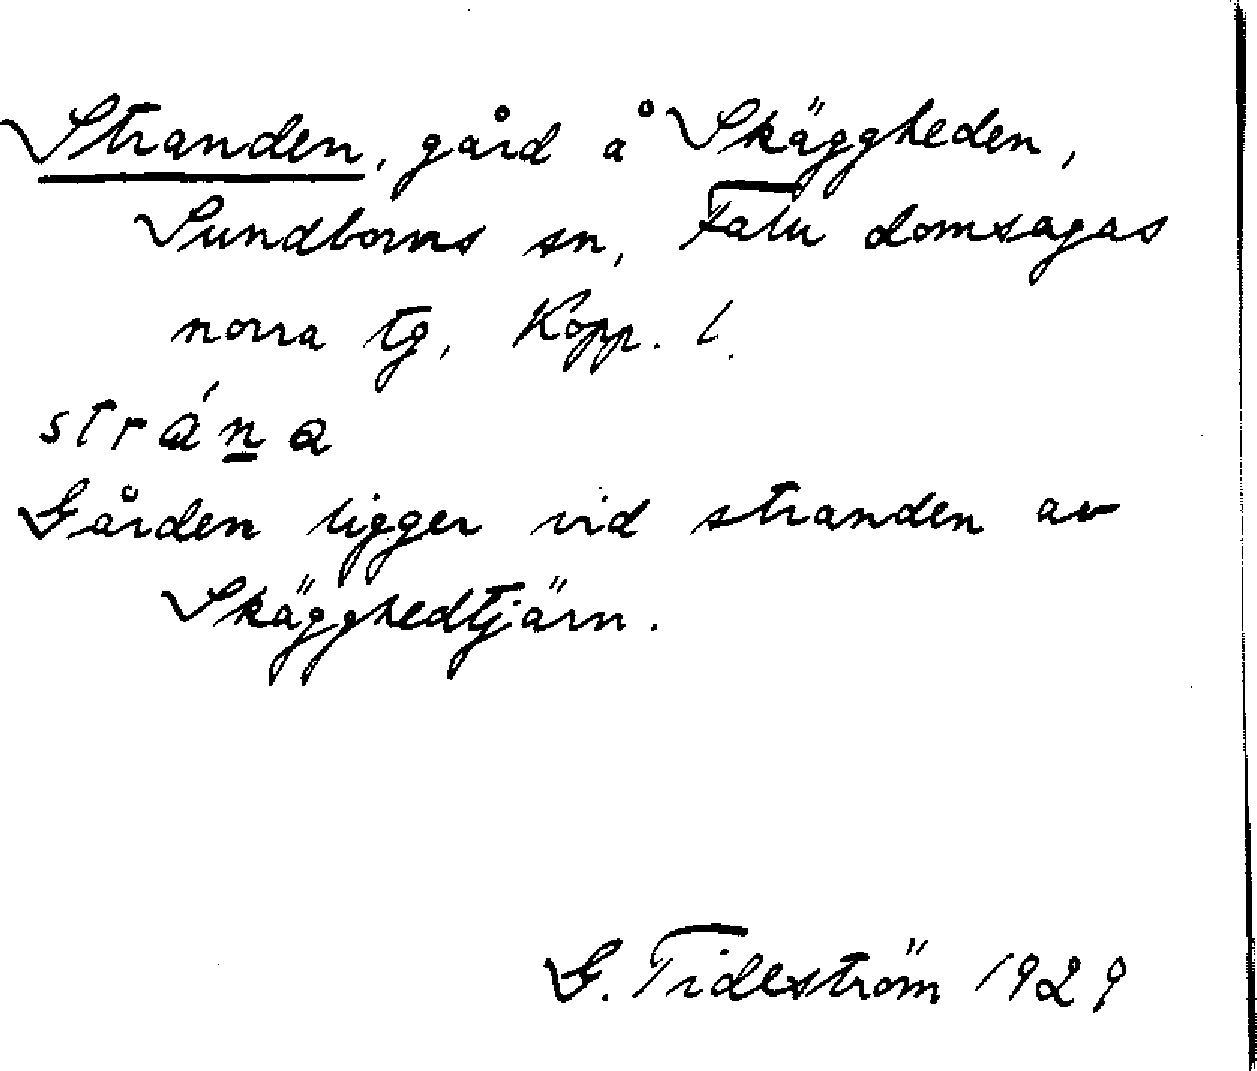 Stranden, gård å Skäggheden,
Sundborns sn, Falu domsagas
norra tg, Kopp. l.
strána
Gården ligger vid stranden av
Skägghedtjärn.
G. Tideström 1929